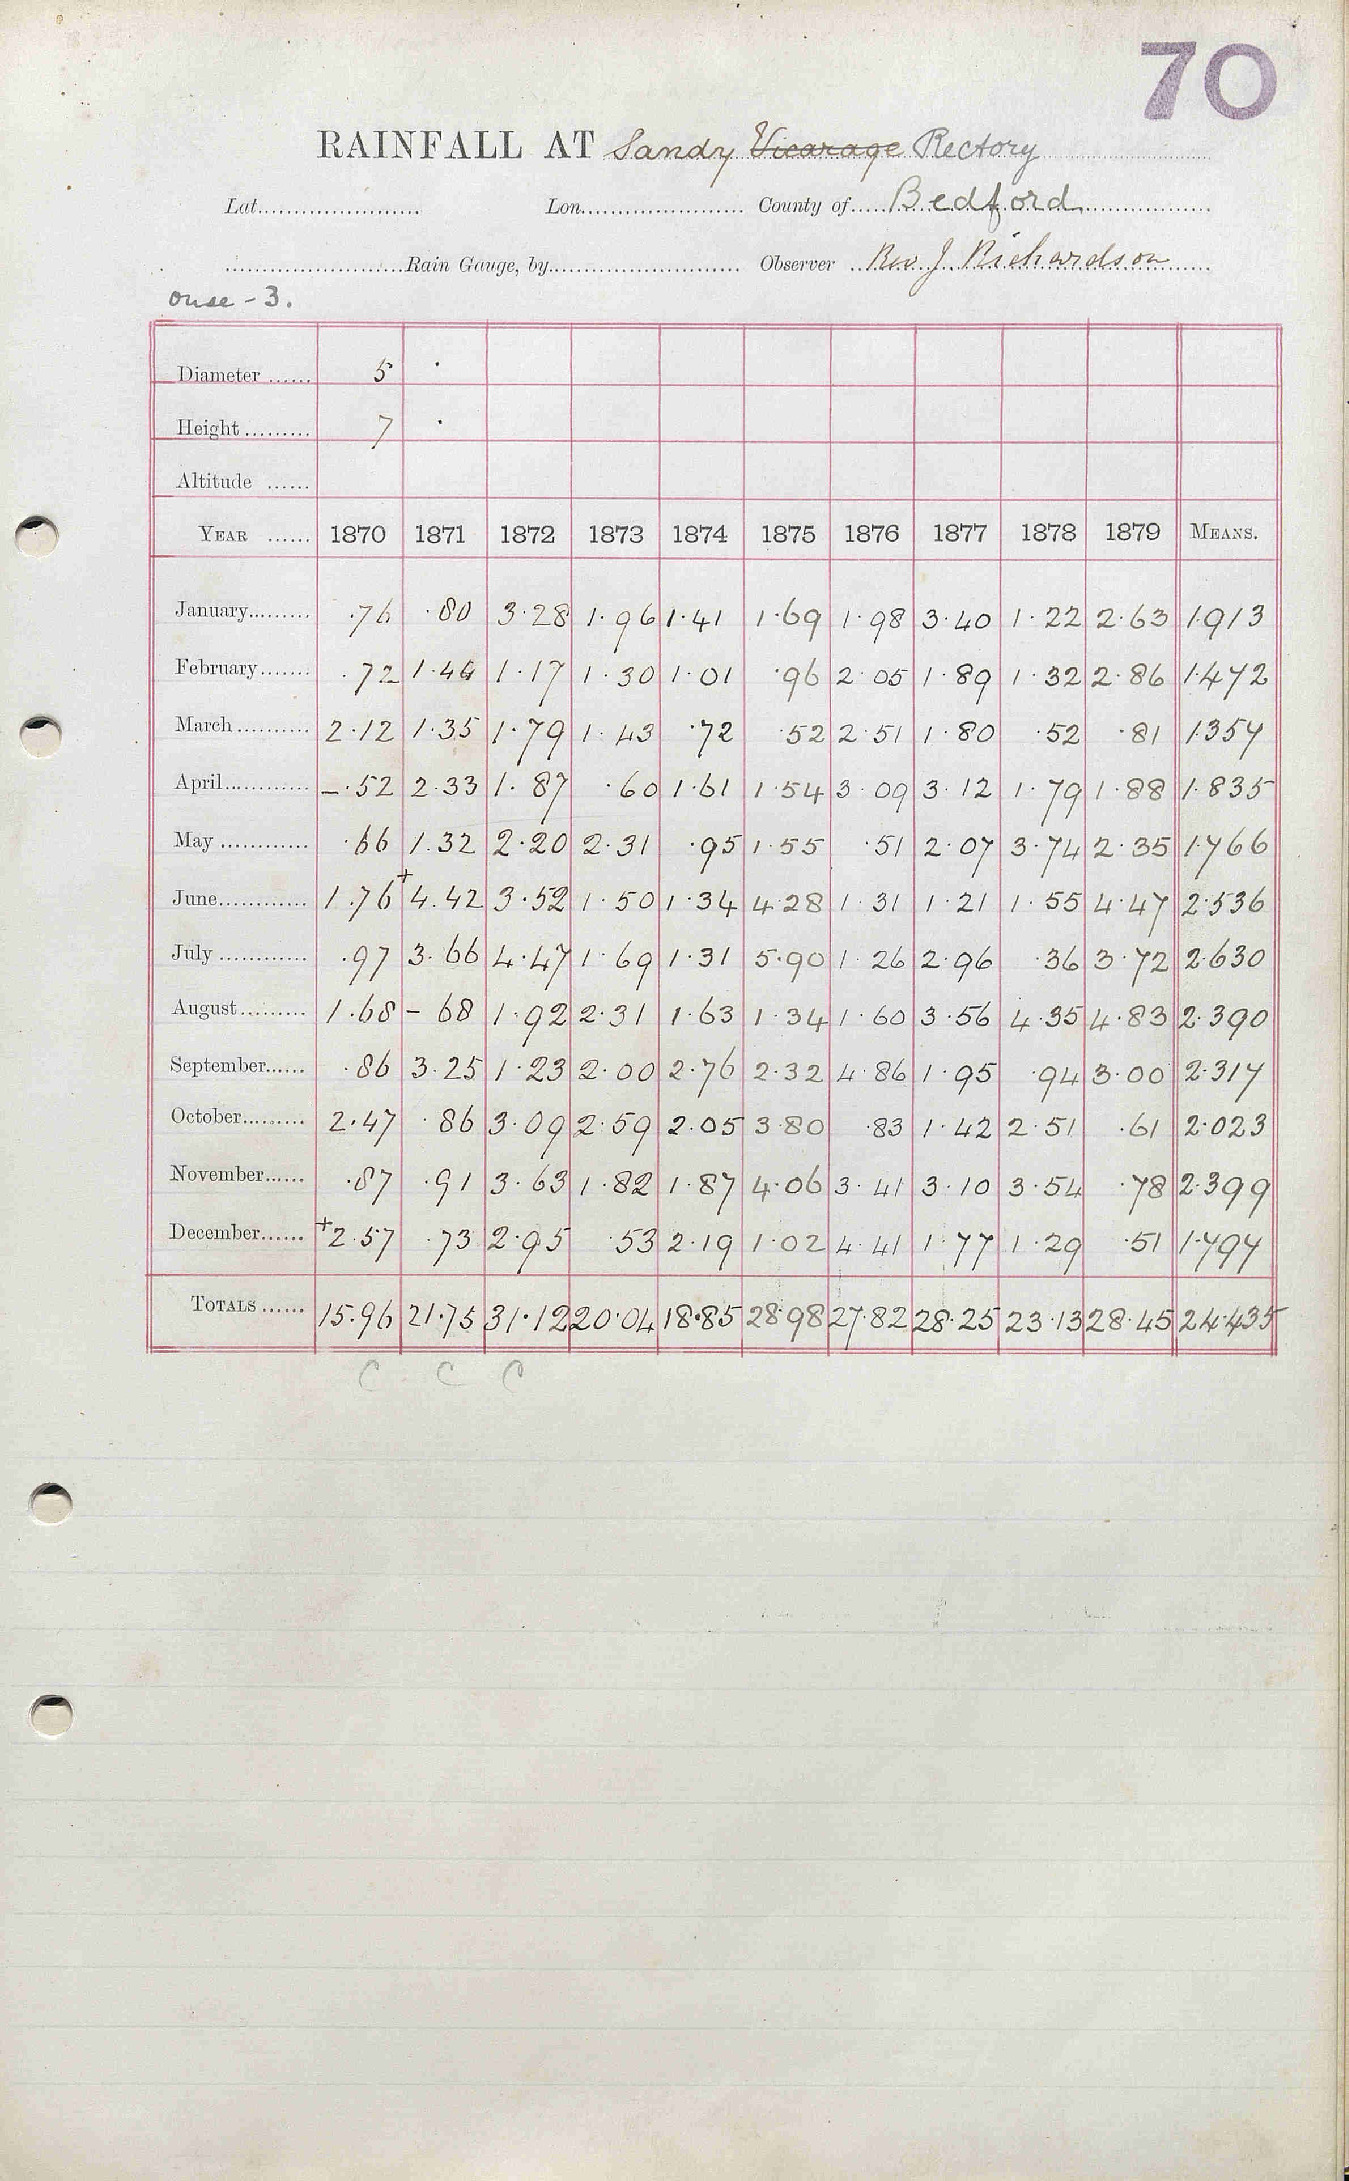 70
RAINFALL AT Sandy Vicarage Rectory
Lat. Lon. County of Bedford
Rain Gauge, by Observer Rev J. Richardson
ouse - 3.
Diameter 5 ·
Height 7 ·
Altitude
YEAR 1870 1871 1872 1873 1874 1875 1876 1877 1878 1879 MEANS.
January ·76 ·80 3·28 1·96 1·41 1·69 1·98 3·40 1·22 2·63 1·913
February ·72 1·44 1·17 1·30 1·01 ·96 2·05 1·89 1·32 2·86 1·472
March 2·12 1·35 1·79 1·43 ·72 ·52 2·51 1·80 ·52 ·81 1·357
April –·52 2·33 1·87 ·60 1·61 1·54 3·09 3·12 1·79 1·88 1·835
May ·66 1·32 2·20 2·31 ·95 1·55 ·51 2·07 3·74 2·35 1·766
June 1·76 +4·42 3·52 1·50 1·34 4·28 1·31 1·21 1·55 4·47 2·536
July ·97 3·66 4·47 1·69 1·31 5·90 1·26 2·96 ·36 3·72 2·630
August 1·68 – 68 1·92 2·31 1·63 1·34 1·60 3·56 4·35 4·83 2·390
September ·86 3·25 1·23 2·00 2·76 2·32 4·86 1·95 ·94 3·00 2·317
October 2·47 ·86 3·09 2·59 2·05 3·80 ·83 1·42 2·51 ·61 2·023
November ·87 ·91 3·63 1·82 1·87 4·06 3·41 3·10 3·54 ·78 2·399
December +2·57 ·73 2·95 ·53 2·19 1·02 4·41 1·77 1·29 ·51 1·797
TOTALS 15·96 21·75 31·12 20·04 18·85 28·98 27·82 28·25 23·13 28·45 24·435
C C C